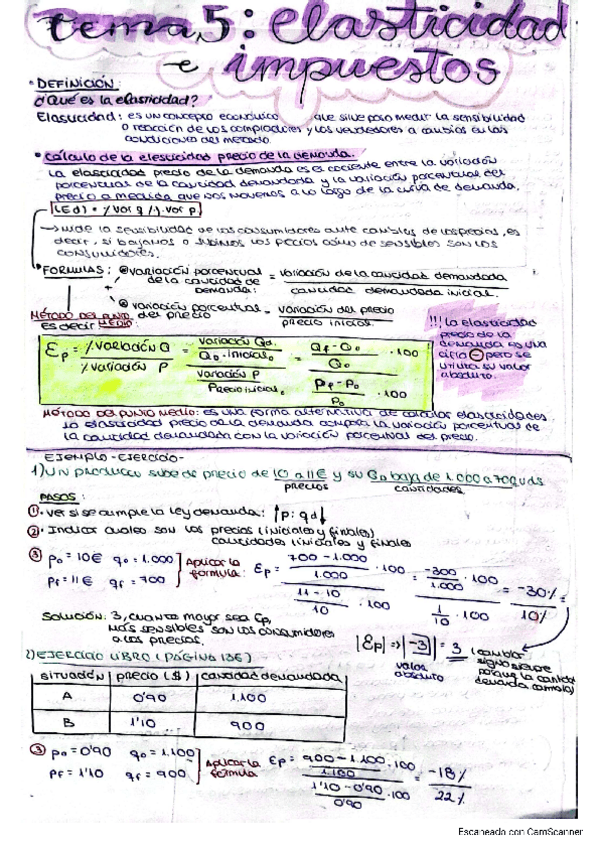 tema 5: elasticidad
e impuestos
• DEFINICIÓN:
¿Qué es la elasticidad?
Elasticidad: es un concepto económico que sirve para medir la sensibilidad
o reacción de los compradores y los vendedores a cambios en las
condiciones del mercado.
• Cálculo de la elasticidad precio de la demanda.
La elasticidad precio de la demanda es el cociente entre la variación
porcentual de la cantidad demandada y la variación porcentual del
precio a medida que nos movemos a lo largo de la curva de demanda.
(Ed) = % var q / % var p
→ mide la sensibilidad de los consumidores ante cambios de los precios, es
decir, si bajamos o subimos los precios cómo de sensibles son los
consumidores.
• FORMULAS: variación porcentual de la cantidad de demanda: = variación de la cantidad demandada / cantidad demandada inicial.
+
variación porcentual del precio = variación del precio / precio inicial.
MÉTODO DEL PUNTO MEDIO:
es decir
Ep = % variación Q / % variación P = variación Qd. / Q0 inicial. / variación P / Precio inicial. = Qf - Q0 / Q0 · 100 / Pf - P0 / P0 · 100
!!! La elasticidad
precio de la
demanda es una
cifra ⊖ pero se
utiliza su valor
absoluto.
MÉTODO DEL PUNTO MEDIO: es una forma alternativa de calcular elasticidades
la elasticidad precio de la demanda compara la variación porcentual de
la cantidad demandada con la variación porcentual del precio.
EJEMPLO - EJERCICIO -
1) UN producto sube de precio de 10 a 11€ y su Q0 baja de 1.000 a 700 uds
precios cantidades
PASOS:
① • Ver si se cumple la ley demanda: ↑p: qd↓
② • Indicar cuales son los precios (iniciales y finales)
cantidades (iniciales y finales
③ p0 = 10€ q0 = 1.000
pf = 11€ qf = 700
Aplicar la
formula: Ep = 700 - 1.000 / 1.000 · 100 / 11 - 10 / 10 · 100 = -300 / 1.000 · 100 / 1 / 10 · 100 = -30% / 10% =
Solución: 3, cuanto mayor sea Ep,
más sensibles son los consumidores
a los precios.
|Ep| => |-3| = 3
valor
absoluto
(cambiar
signo siempre
porque la cantidad
2) EJERCICIO LIBRO (PÁGINA 136)
SITUACIÓN PRECIO ($) CANTIDAD DEMANDADA
A 0'90 1.100
B 1'10 900
③ p0 = 0'90 q0 = 1.100
pf = 1'10 qf = 900
Aplicar la
formula Ep = 900 - 1.100 / 1.100 · 100 / 1'10 - 0'90 / 0'90 · 100 = -18% / 22%
Escaneado con CamScanner